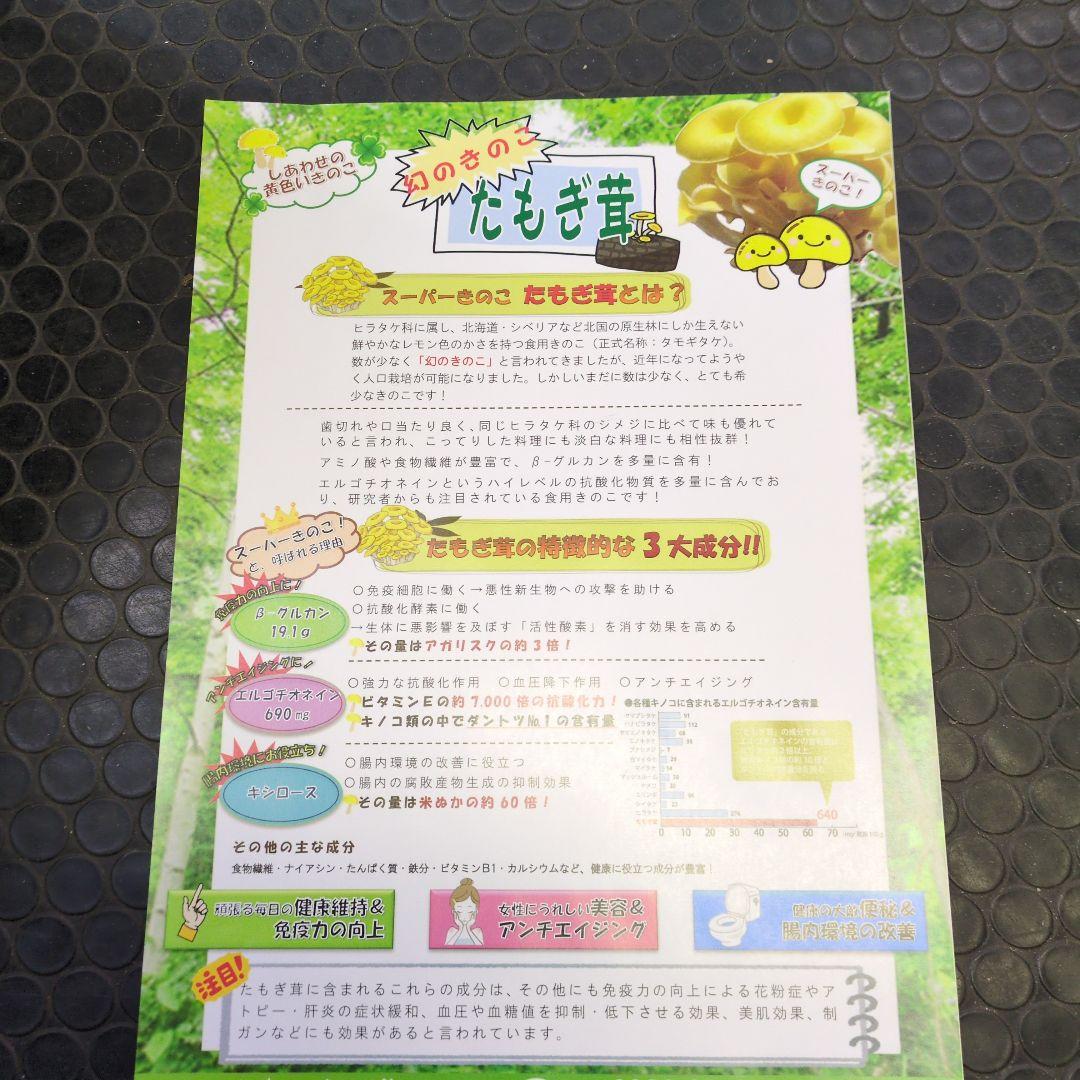 しあわせの
黄色いきのこ
幻のきのこ
たもぎ茸
スーパー
きのこ!
スーパーきのこ たもぎ茸とは?
ヒラタケ科に属し、北海道・シベリアなど北国の原生林にしか生えない
鮮やかなレモン色のかさを持つ食用きのこ(正式名称:タモギタケ)。
数が少なく「幻のきのこ」と言われてきましたが、近年になってようや
く人口栽培が可能になりました。しかしいまだに数は少なく、とても希
少なきのこです!
歯切れや口当たり良く、同じヒラタケ科のシメジに比べて味も優れて
いると言われ、こってりした料理にも淡白な料理にも相性抜群!
アミノ酸や食物繊維が豊富で、β-グルカンを多量に含有!
エルゴチオネインというハイレベルの抗酸化物質を多量に含んでお
り、研究者からも注目されている食用きのこです!
スーパーきのこ!
と、呼ばれる理由
たもぎ茸の特徴的な3大成分!!
免疫力の向上に!
β-グルカン
19.1g
○免疫細胞に働く→悪性新生物への攻撃を助ける
○抗酸化酵素に働く
→生体に悪影響を及ぼす「活性酸素」を消す効果を高める
その量はアガリスクの約3倍!
アンチエイジングに!
エルゴチオネイン
690mg
○強力な抗酸化作用 ○血圧降下作用 ○アンチエイジング
ビタミンEの約7,000倍の抗酸化力!
キノコ類の中でダントツNo.1の含有量
●各種キノコに含まれるエルゴチオネイン含有量
112
640
0 10 20 30 40 50 60 70
腸内環境にお役立ち!
キシロース
○腸内環境の改善に役立つ
○腸内の腐敗産物生成の抑制効果
その量は米ぬかの約60倍!
その他の主な成分
食物繊維・ナイアシン・たんぱく質・鉄分・ビタミンB1・カルシウムなど、健康に役立つ成分が豊富!
頑張る毎日の健康維持&
免疫力の向上
女性にうれしい美容&
アンチエイジング
健康の大敵便秘&
腸内環境の改善
注目!
たもぎ茸に含まれるこれらの成分は、その他にも免疫力の向上による花粉症やア
トピー・肝炎の症状緩和、血圧や血糖値を抑制・低下させる効果、美肌効果、制
ガンなどにも効果があると言われています。